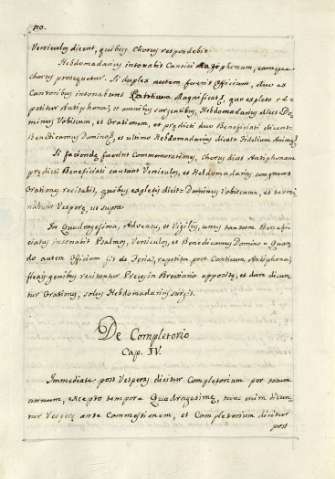 110.
Versiculos dicent, quibus Chorus respondebit.
Hebdomadarius intonabit Cantici Antiphonam, eamque
chorus prosequetur. Si duplex autem fuerit Officium, duo ex
Cantoribus intonabunt Canticum Magnificat, quo expleto re
petitur Antiphona, et omnibus surgentibus, Hebdomadarius dicet Do
minus Vobiscum, et Orationem, et prædicti duo Beneficiati dicent
Benedicamus Domino, et ultimo Hebdomadarius dicet Fidelium Animæ.
Si faciendæ fuerint Commemorationes, Chorus dicet Antiphonam
prædicti Beneficiati cantent Versiculos, et Hebdomadarius
Orationes recitabit, quibus expletis dicit Dominus Vobiscum, et termi
nabunt Vesperæ, ut supra.
In Quadragesima, Adventu, et Vigiliis, unus tantum Benefi
ciatus intonabit Psalmos, Versiculos, et Benedicamus Domino. Quan
do autem Officium sit de Feria, repetita post Canticum Antiphona,
flexis genibus recitentur Preces in Breviario appositæ, et dum dicun
tur Orationes, solus Hebdomadarius surgit.
De Completorio
Cap. IV.
Immediate post Vesperas dicitur Completorium per totum
annum, excepto tempore Quadragesimæ, tunc enim dicun
tur Vesperæ ante Commestionem, et Completorium dicitur
post